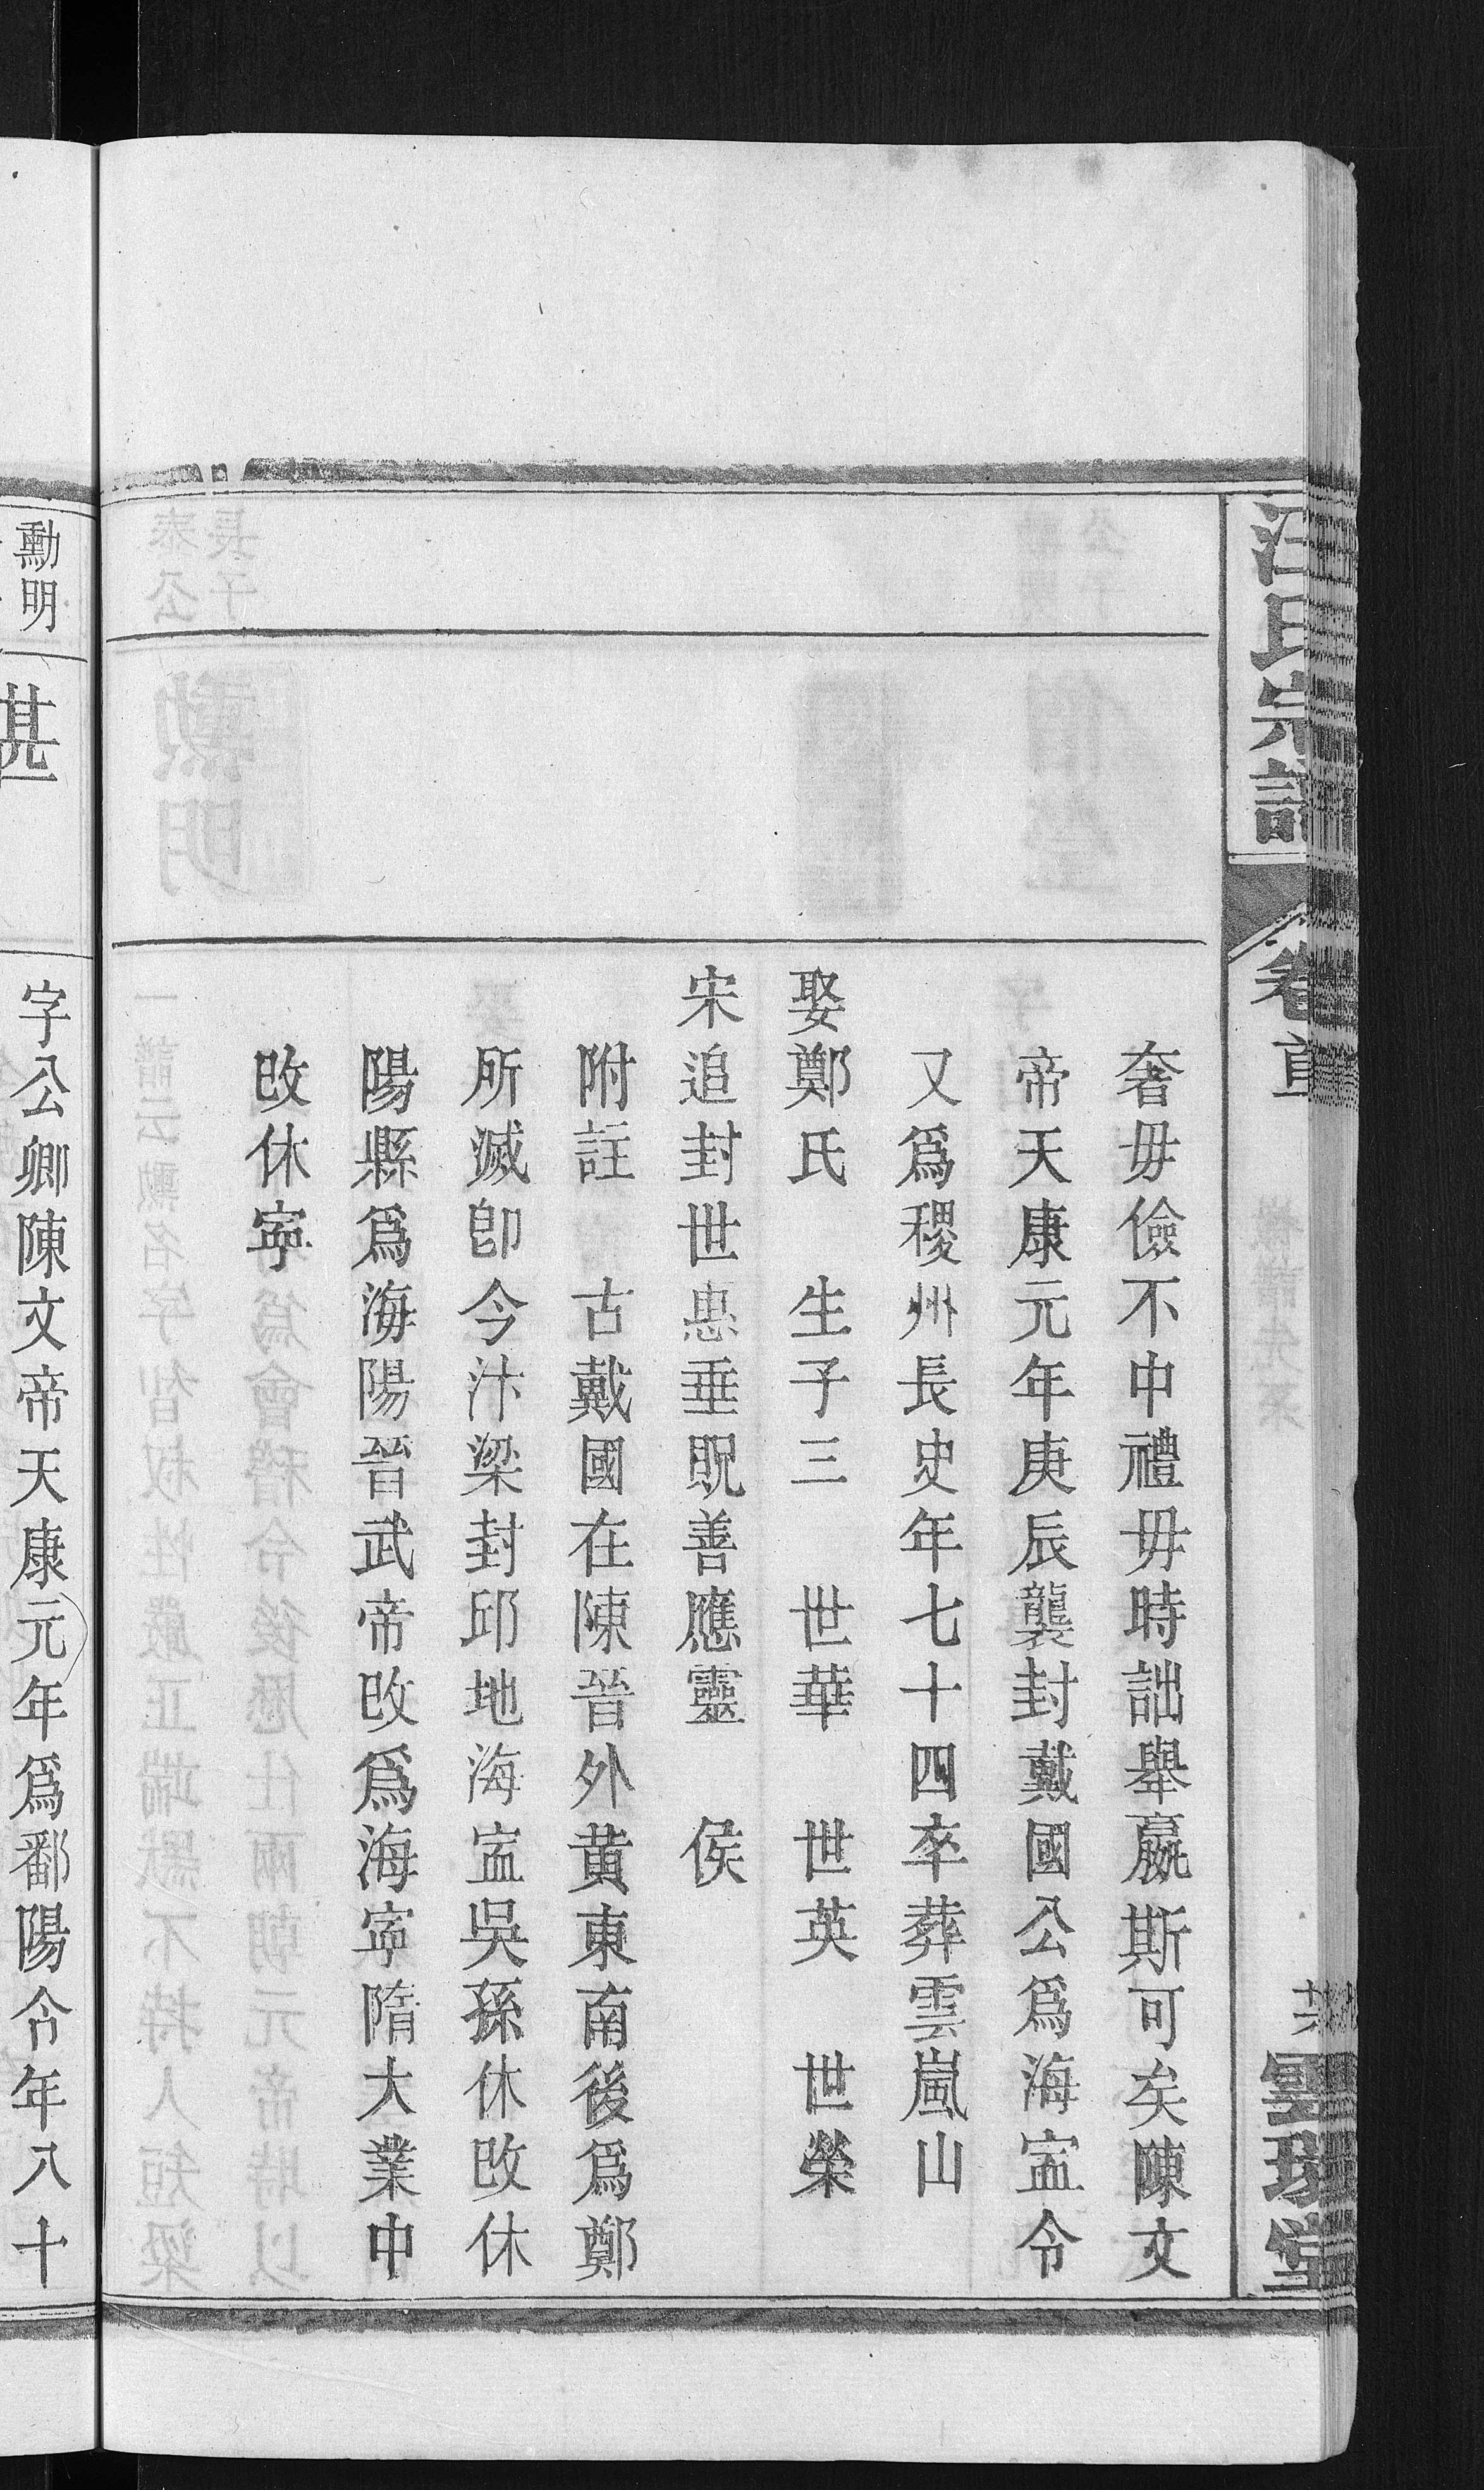 汪氏宗譜
卷首
奢毋儉不中禮毋時詘舉嬴斯可矣陳文
帝天康元年庚辰襲封戴國公爲海寍令
又爲稷州長史年七十四卒葬雲嵐山
娶鄭氏 生子三 世華 世英 世榮
宋追封世惠垂貺善應靈 侯
附註 古戴國在陳晉外黃東南後爲鄭
所滅卽今汴梁封邱地海寍吳孫休攺休
陽縣爲海陽晉武帝攺爲海寧隋大業中
攺休寧
勳明
甚
字公卿陳文帝天康元年爲鄱陽令年八十